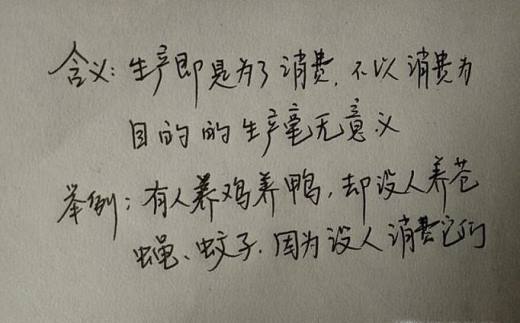 含义：生产即是为了消费，不以消费为
目的的生产毫无意义
举例：有人养鸡养鸭，却没人养苍
蝇、蚊子，因为没人消费它们